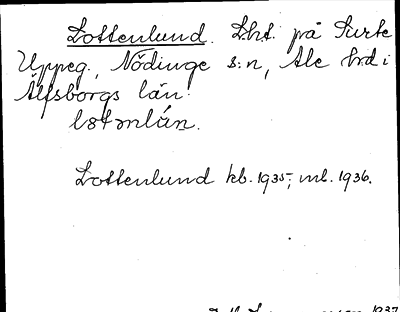 Lottenlund. Lht. på Surte
Uppeg., Nödinge s:n, Ale hd i
Älfsborgs län.
lotənlún.
Lottenlund kb. 1935; ml. 1936.
1937